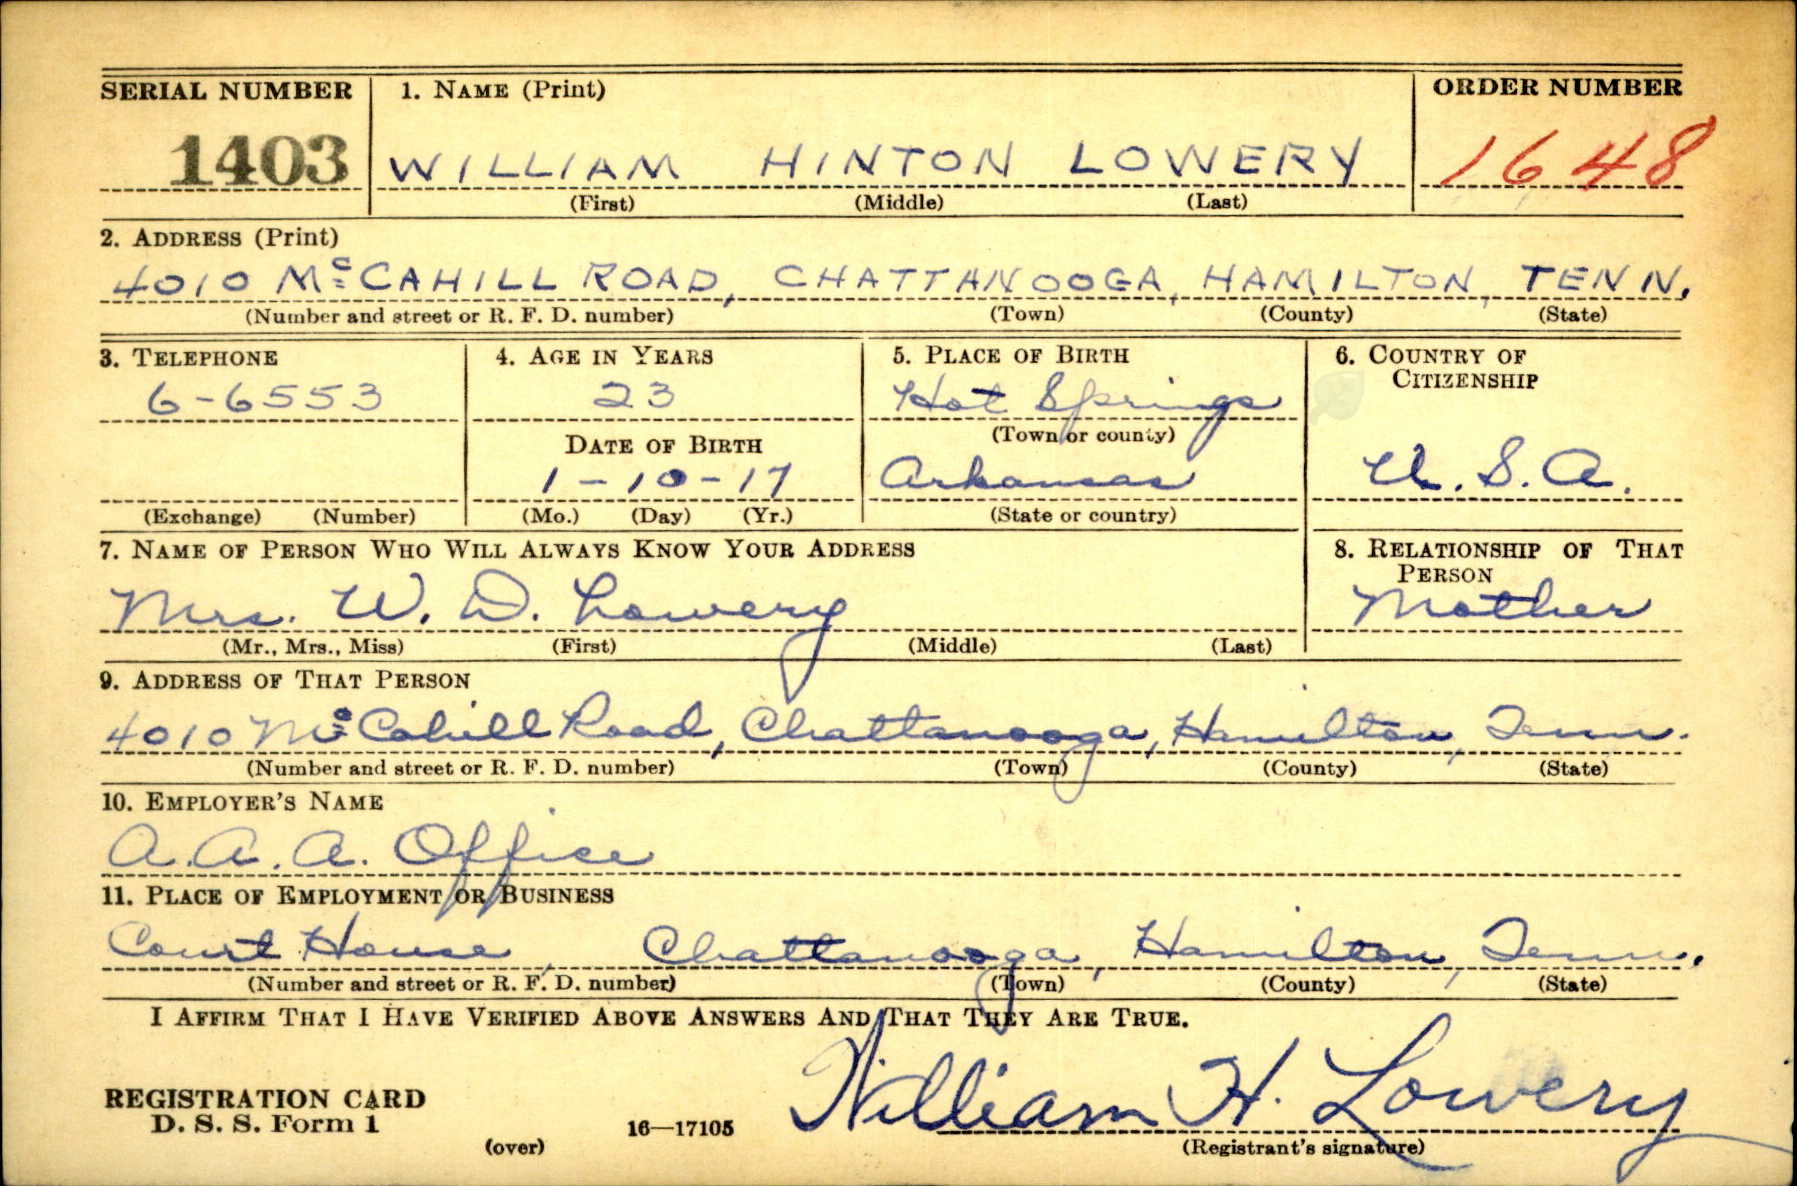 SERIAL NUMBER 1. NAME (Print) ORDER NUMBER
1403 WILLIAM HINTON LOWERY 1648
(First) (Middle) (Last)
2. ADDRESS (Print)
4010 McCAHILL ROAD, CHATTANOOGA, HAMILTON, TENN.
(Number and street or R. F. D. number) (Town) (County) (State)
3. TELEPHONE 4. AGE IN YEARS 5. PLACE OF BIRTH 6. COUNTRY OF
CITIZENSHIP
6-6553 23 Hot Springs
(Town or county)
DATE OF BIRTH
1-10-17 Arkansas U.S.A.
(Exchange) (Number) (Mo.) (Day) (Yr.) (State or country)
7. NAME OF PERSON WHO WILL ALWAYS KNOW YOUR ADDRESS 8. RELATIONSHIP OF THAT
PERSON
Mrs. W. D. Lowery Mother
(Mr., Mrs., Miss) (First) (Middle) (Last)
9. ADDRESS OF THAT PERSON
4010 McCahill Road, Chattanooga, Hamilton, Tenn.
(Number and street or R. F. D. number) (Town) (County) (State)
10. EMPLOYER'S NAME
A.A.A. Office
11. PLACE OF EMPLOYMENT OR BUSINESS
Court House, Chattanooga, Hamilton, Tenn.
(Number and street or R. F. D. number) (Town) (County) (State)
I AFFIRM THAT I HAVE VERIFIED ABOVE ANSWERS AND THAT THEY ARE TRUE.
REGISTRATION CARD
D. S. S. Form 1 16—17105 William H. Lowery
(over) (Registrant's signature)